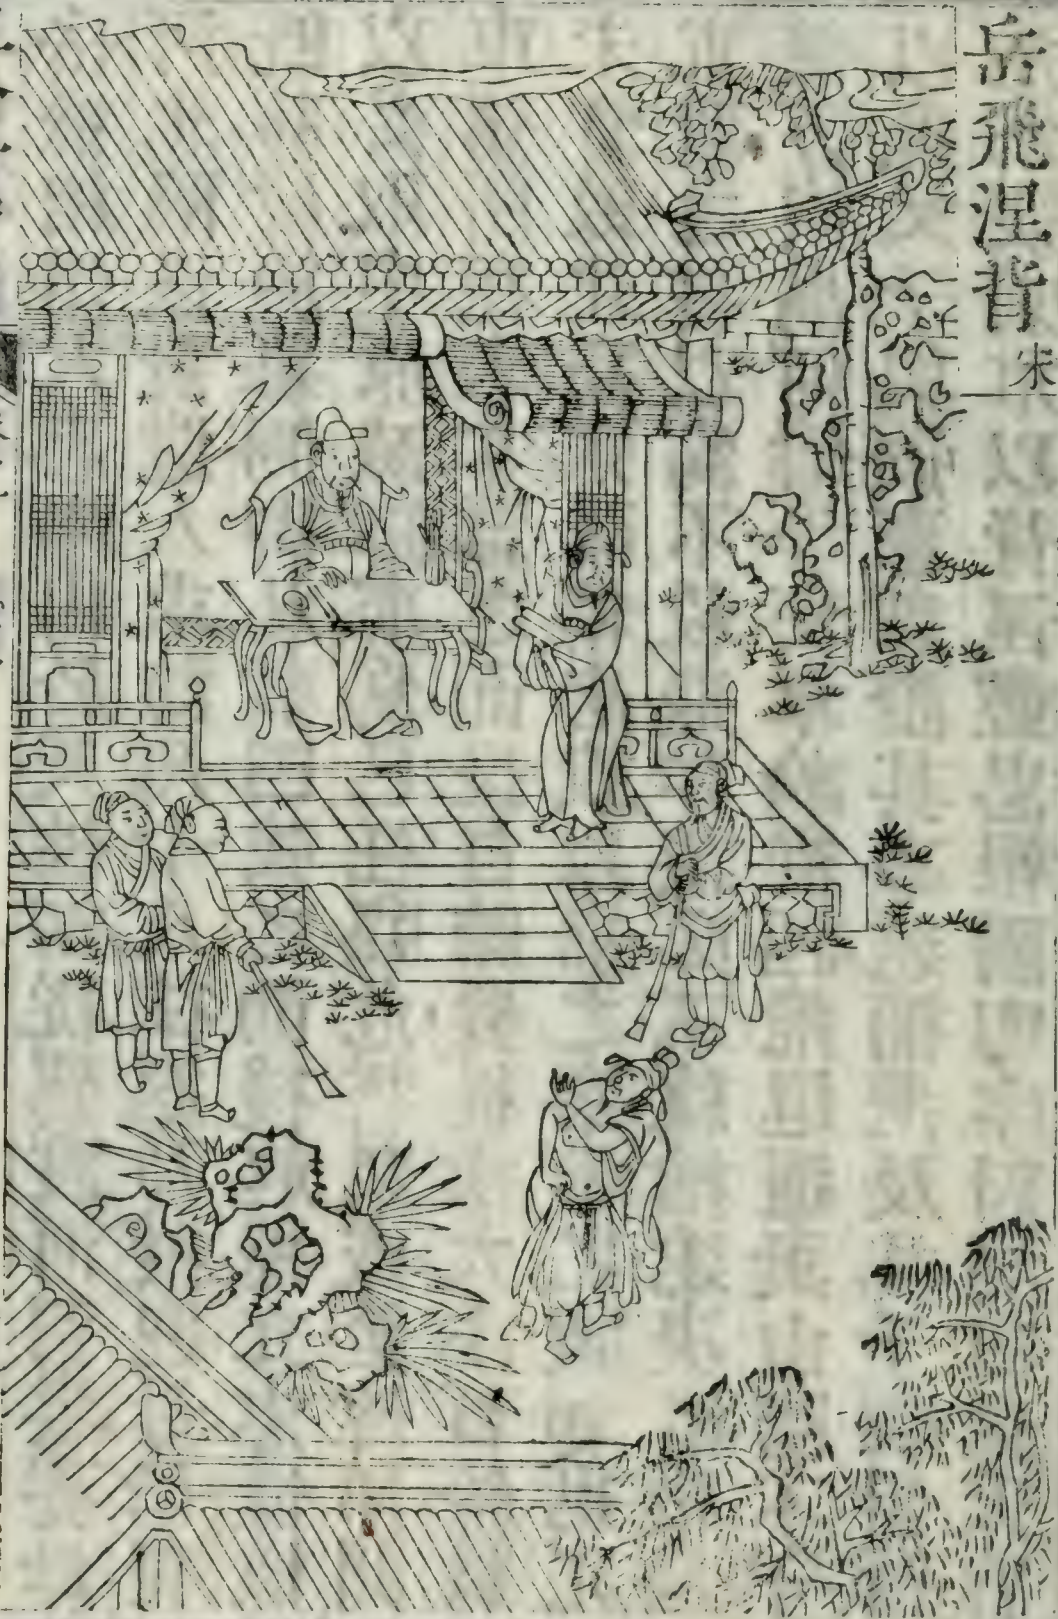 岳飛涅背
宋